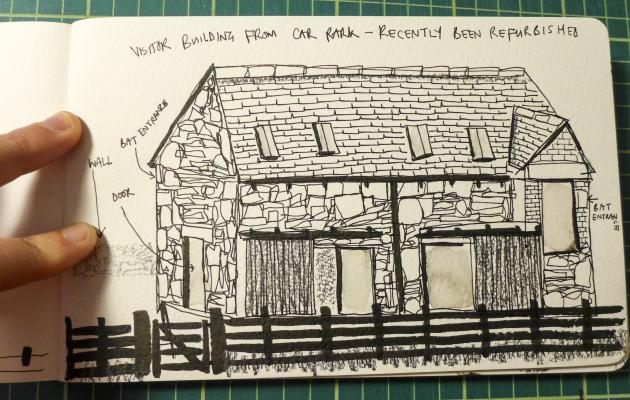 VISITOR BUILDING FROM CAR PARK – RECENTLY BEEN REFURBISHED
BAT ENTRANCE
WALL
DOOR
BAT
ENTRAN
CE